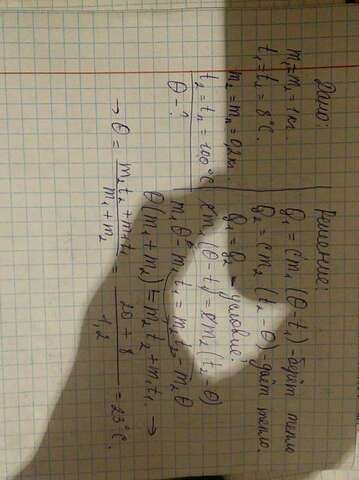 Дано:
m₁=m₁=1кг.
t₁=t₁=8°C.
m₂=mп=0,2кг
t₂=tп=100°C
θ-?
Решение:
Q₁=cm₁(θ-t₁)-берёт тепло
Q₂=cm₂(t₂-θ)-даёт тепло.
Q₁=Q₂ - условие!
cm₁(θ-t₁)=cm₂(t₂-θ)
m₁θ-m₁t₁=m₂t₂-m₂θ
θ(m₁+m₂)=m₂t₂+m₁t₁. →
→ θ = m₂t₂+m₁t₁ / m₁+m₂ = 20+8 / 1,2 = 23°C.